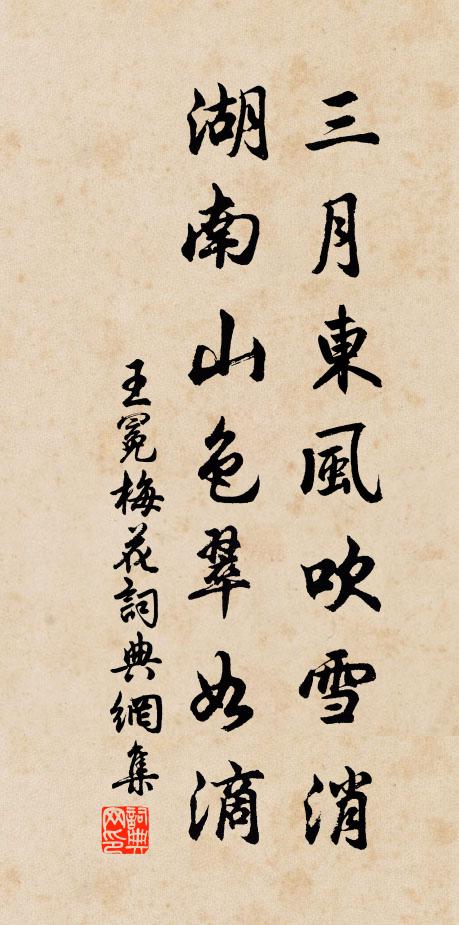 三月東風吹雪消
湖南山色翠如滴
王冕梅花詞典網集
詞典
网印